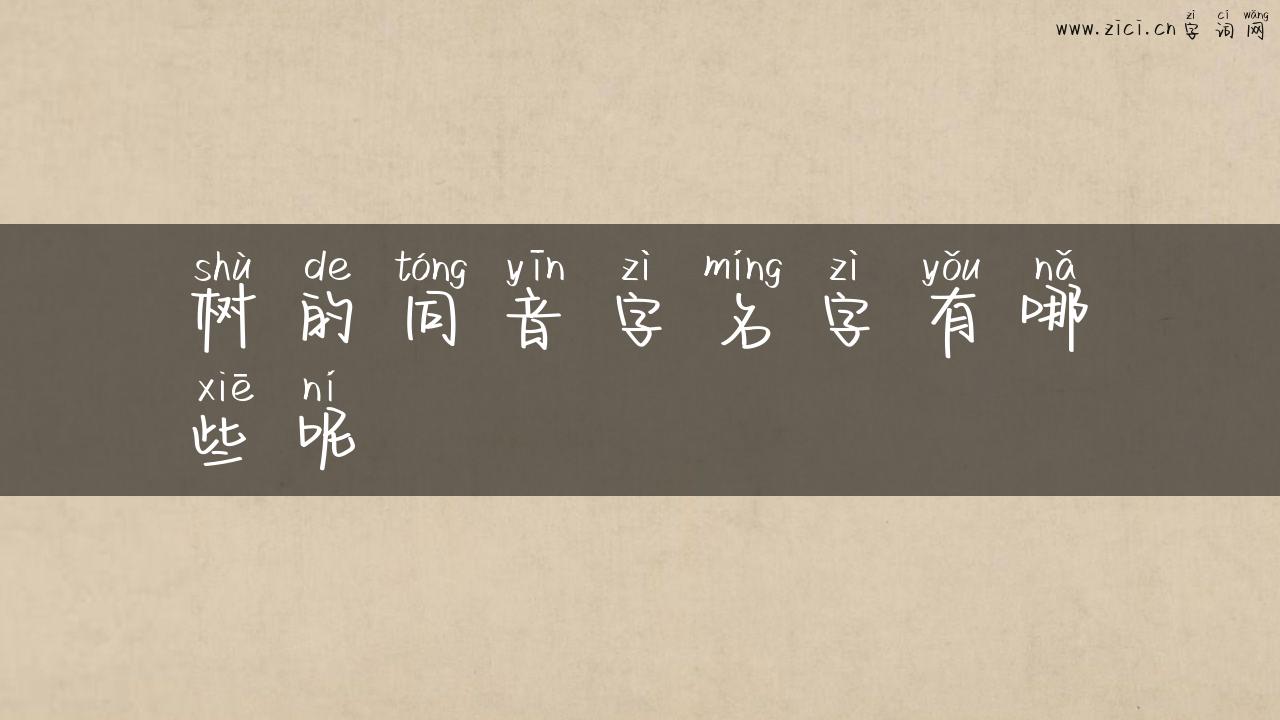 zì cí wǎng
www.zici.cn字词网
shù de tóng yīn zì míng zì yǒu nǎ
树的同音字名字有哪
xiē ní
些呢